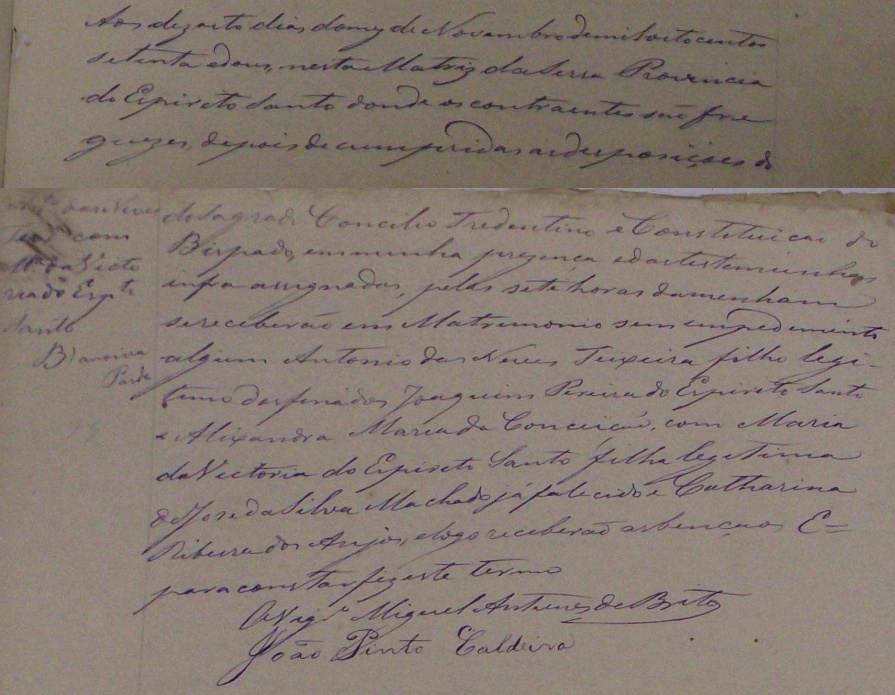 Aos dezoito dias do mez de Novembro de mil oito centos
setenta e dous, nesta Matriz da Serra Provincia
do Espirito Santo donde os contraentes são fre
guezes, depois de cumpridas as desposiçoes do
do Sagrado Concilio Tredentino e Constituicao do
Bispado, em minha presença e das testemunhas
infra assignadas, pelas sete horas da menham
se receberão em Matrimonio sem empedemento
algum Antonio das Neves Teixeira filho legi-
timo dos finados Joaquim Pereira do Espirito Santo
e Alixandra Maria da Conceição, com Maria
da Victoria do Espirito Santo filha legitima
de Jose da Silva Machado já falecido e Catharina
Ribeira dos Anjos, e logo receberão as bençaos E=
para constar fiz este termo
O Vigrº Miguel Antunes de Brito
João Pinto Caldeira
das Neves
com
Mª da Victo
ria do Espto
Santo
Parda